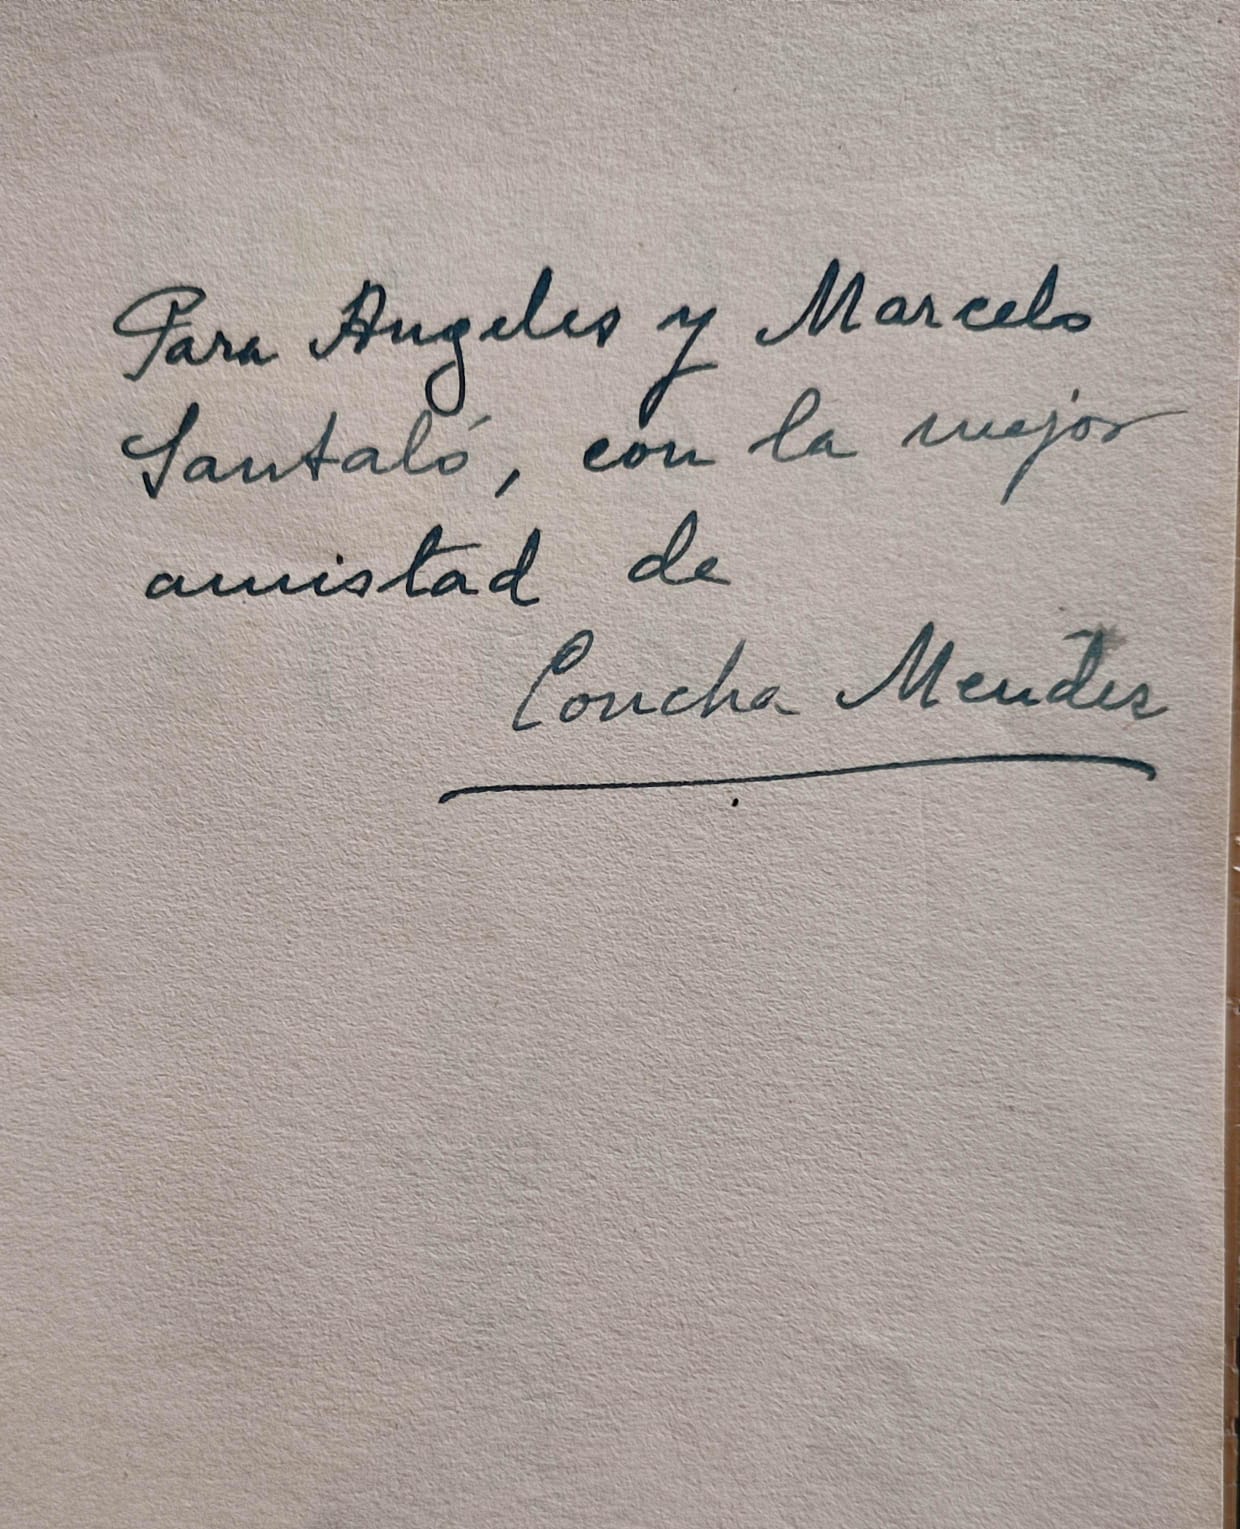 Para Angeles y Marcelo
Santaló, con la mejor
amistad de
Concha Mendez